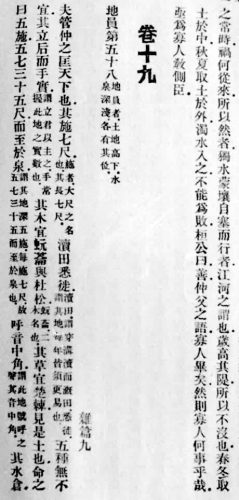 之常時禍何從來所以然者獨水蒙壤自塞而行者江河之謂也歲高其隄所以不沒也春冬取
土於中秋夏取土於外濁水入之不能為敗桓公曰善仲父之語寡人畢矣然則寡人何事乎哉
亟為寡人敎側臣
卷十九
地員第五十八地員者土地高下水泉深淺各有其位
雜篇九
夫管仲之匡天下也其施七尺施者大尺之名也其長七尺瀆田悉徙瀆田謂穿溝瀆而溉田悉徙謂其地每年皆須更易也五種無不
宜其立后而手實謂立君以主之手常握此地之實數也其木宜蚖菕與杜松蚖菕二木名也其草宜楚棘見是土也命之
曰五施五七三十五尺而至於泉謂其地深五施每施七尺故五七三十五而至於泉也呼音中角謂此地號呼之聲其音中角其水倉